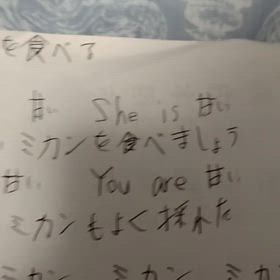 を食べる
甘い She is 甘い
ミカンを食べましょう
甘い You are 甘い
ミカンもよく採れた
ミカン ミカン ミカ